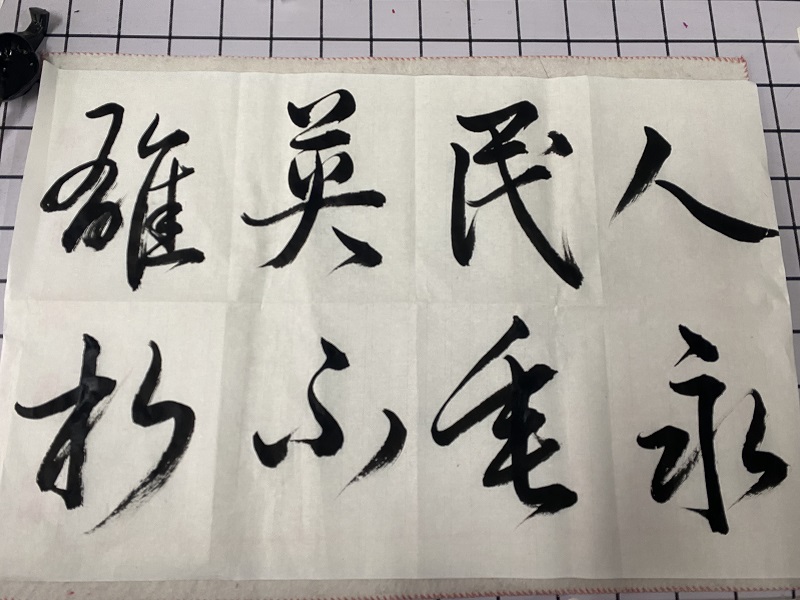 人民英雄
永垂不朽